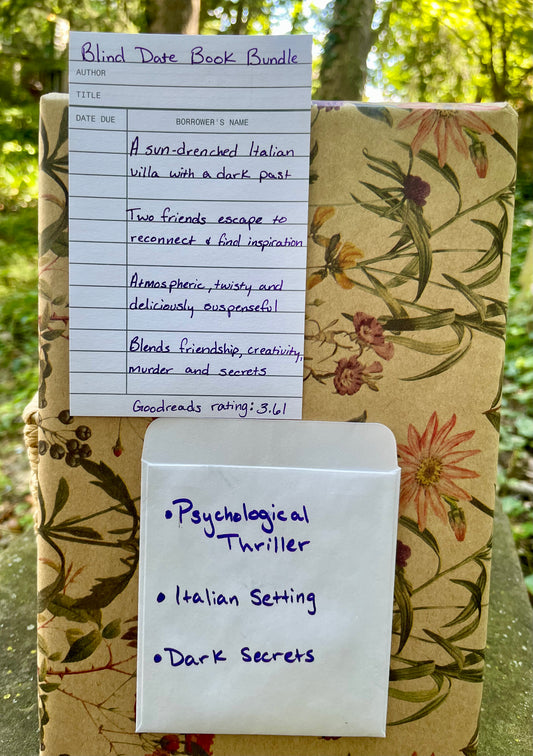 Blind Date Book Bundle
AUTHOR
TITLE
DATE DUE BORROWER'S NAME
A sun-drenched Italian
villa with a dark past
Two friends escape to
reconnect & find inspiration
Atmospheric, twisty and
deliciously suspenseful
Blends friendship, creativity,
murder and secrets
Goodreads rating: 3.61
• Psychological
Thriller
• Italian Setting
• Dark Secrets